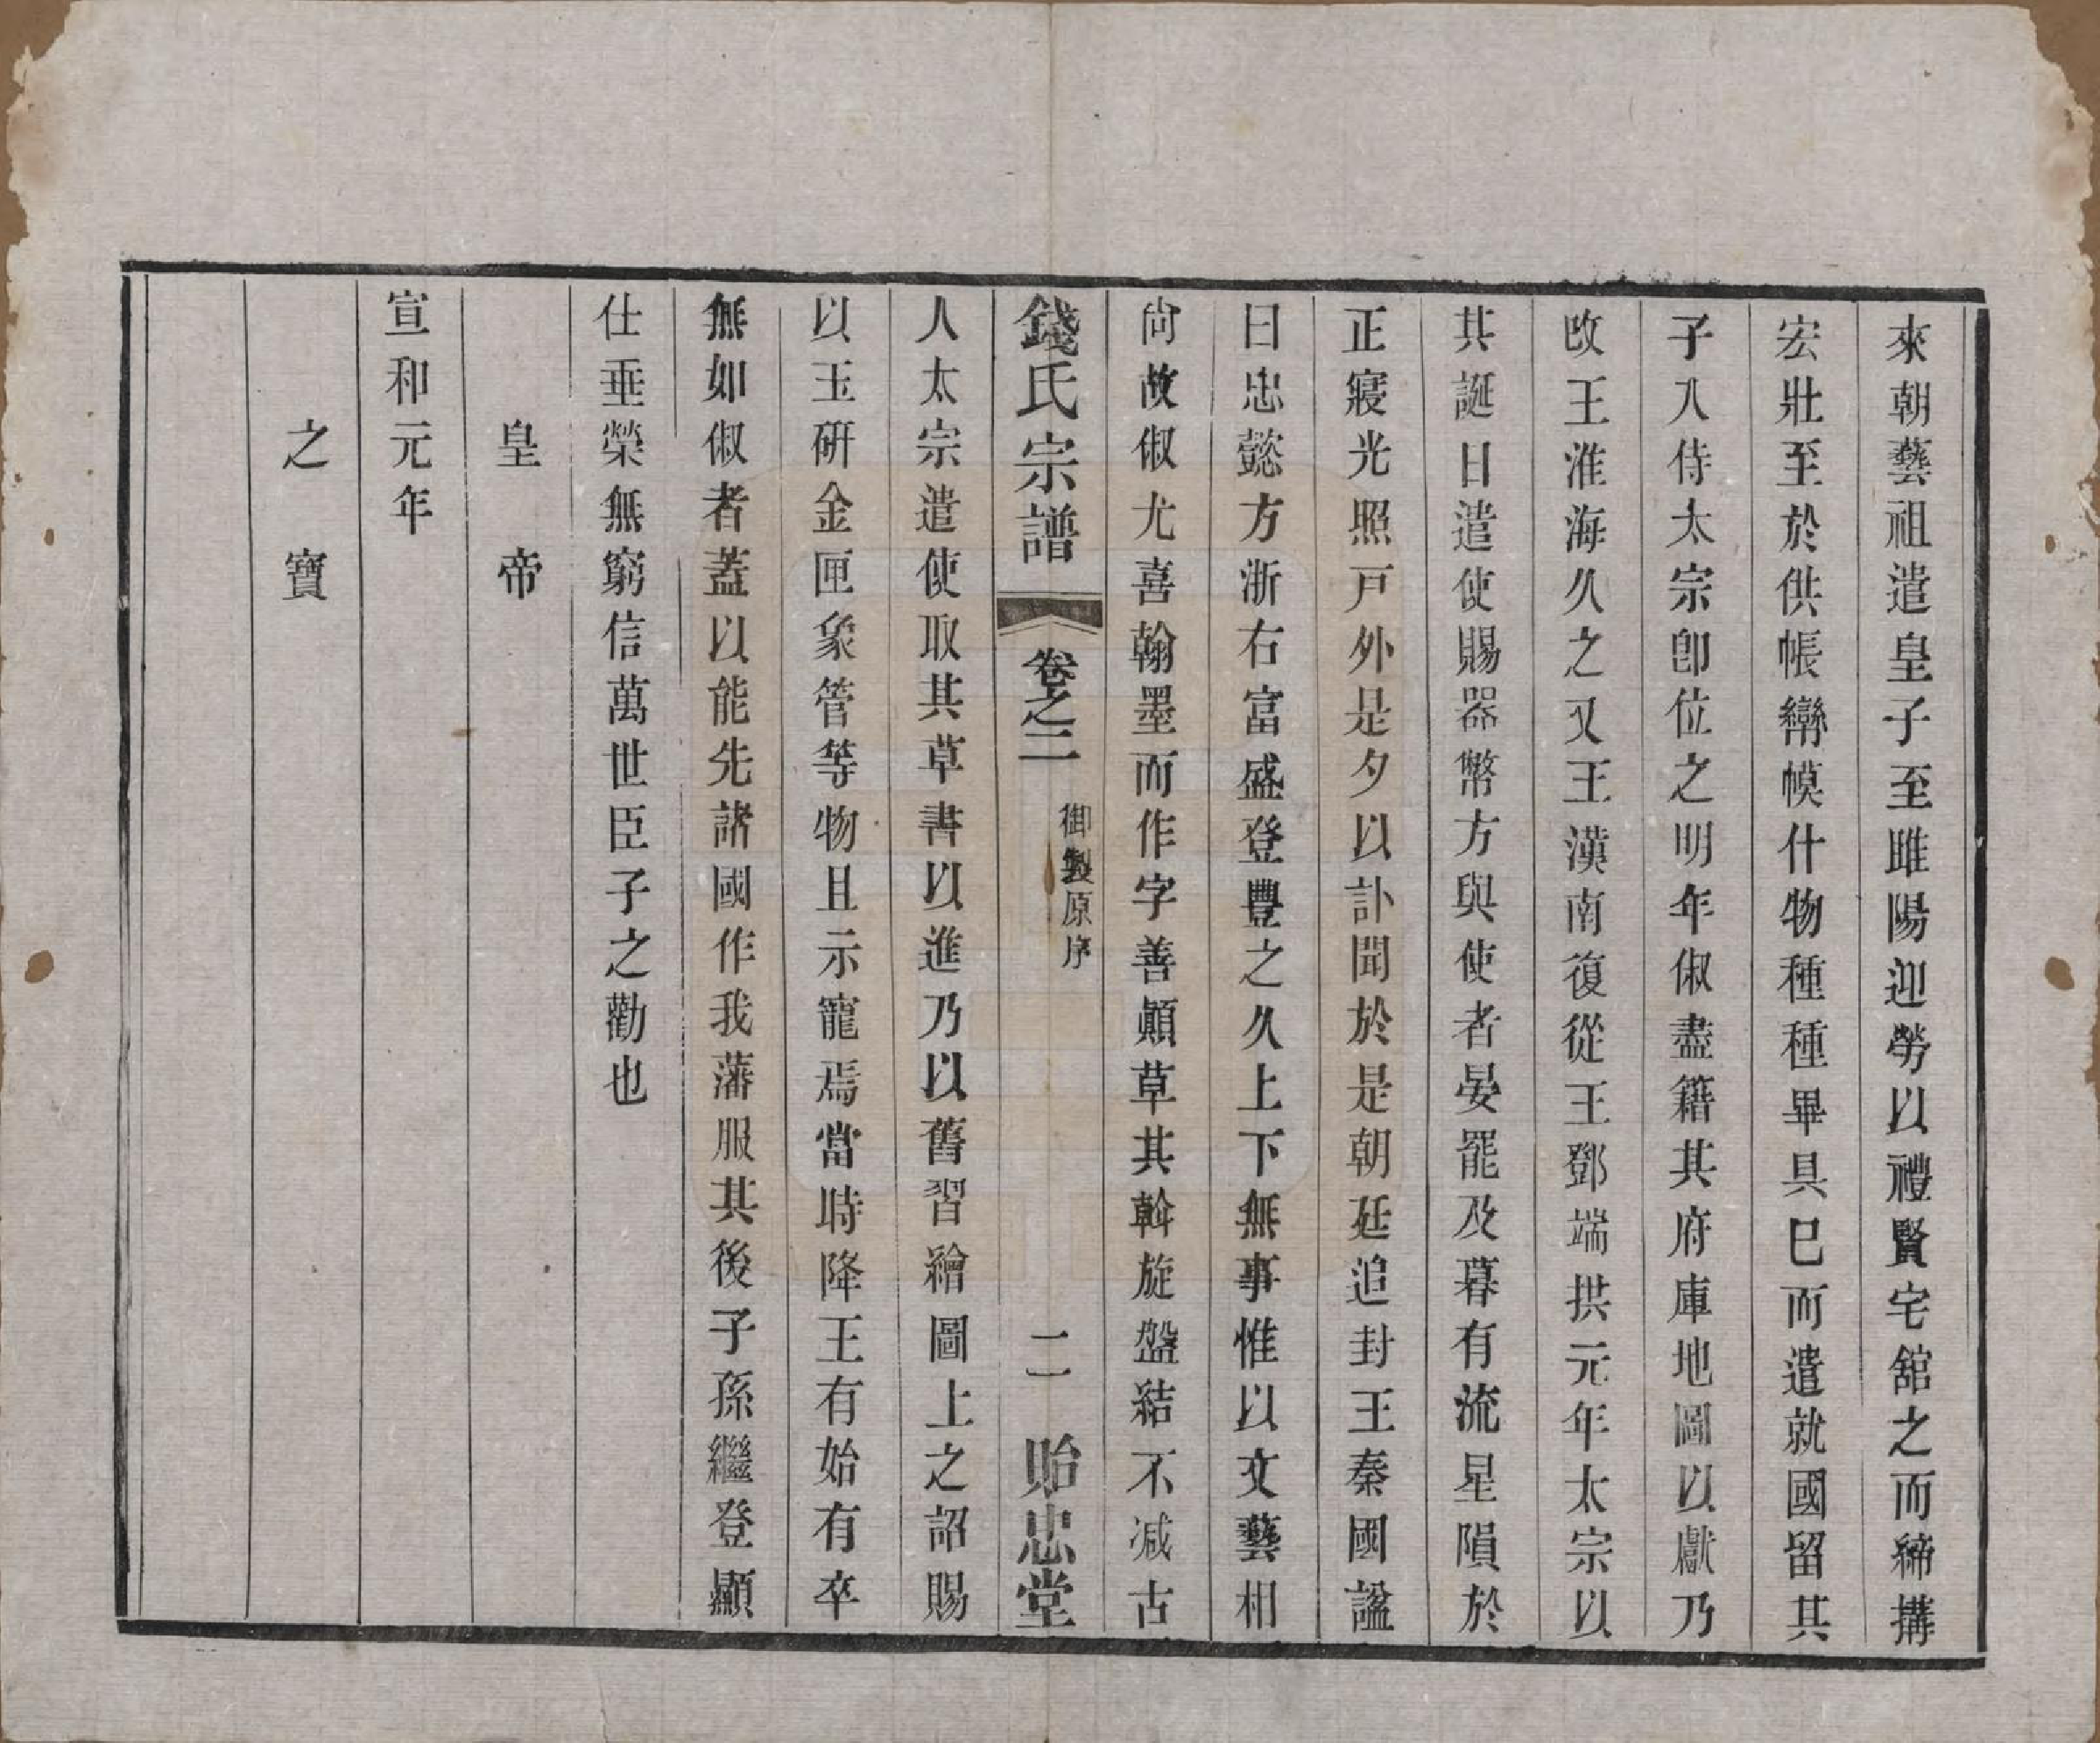 來朝藝祖遣皇子至雎陽迎勞以禮賢宅舘之而締搆
宏壯至於供帳幃幙什物種種畢具巳而遣就國留其
子入侍太宗卽位之明年俶盡籍其府庫地圖以獻乃
改王淮海久之又王漢南復從王鄧端拱元年太宗以
其誕日遣使賜器幣方與使者晏罷及暮有流星隕於
正寢光照戸外是夕以訃聞於是朝廷追封王秦國諡
曰忠懿方浙右富盛登豐之久上下無事惟以文藝相
尙故俶尤喜翰墨而作字善顚草其斡旋盤結不减古
錢氏宗譜 卷之二 御製原序 二 貽忠堂
人太宗遣使取其草書以進乃以舊習繪圖上之詔賜
以玉硏金匣象管等物且示寵焉當時降王有始有卒
無如俶者蓋以能先諸國作我藩服其後子孫繼登顯
仕垂榮無窮信萬世臣子之勸也
皇帝
宣和元年
之寶